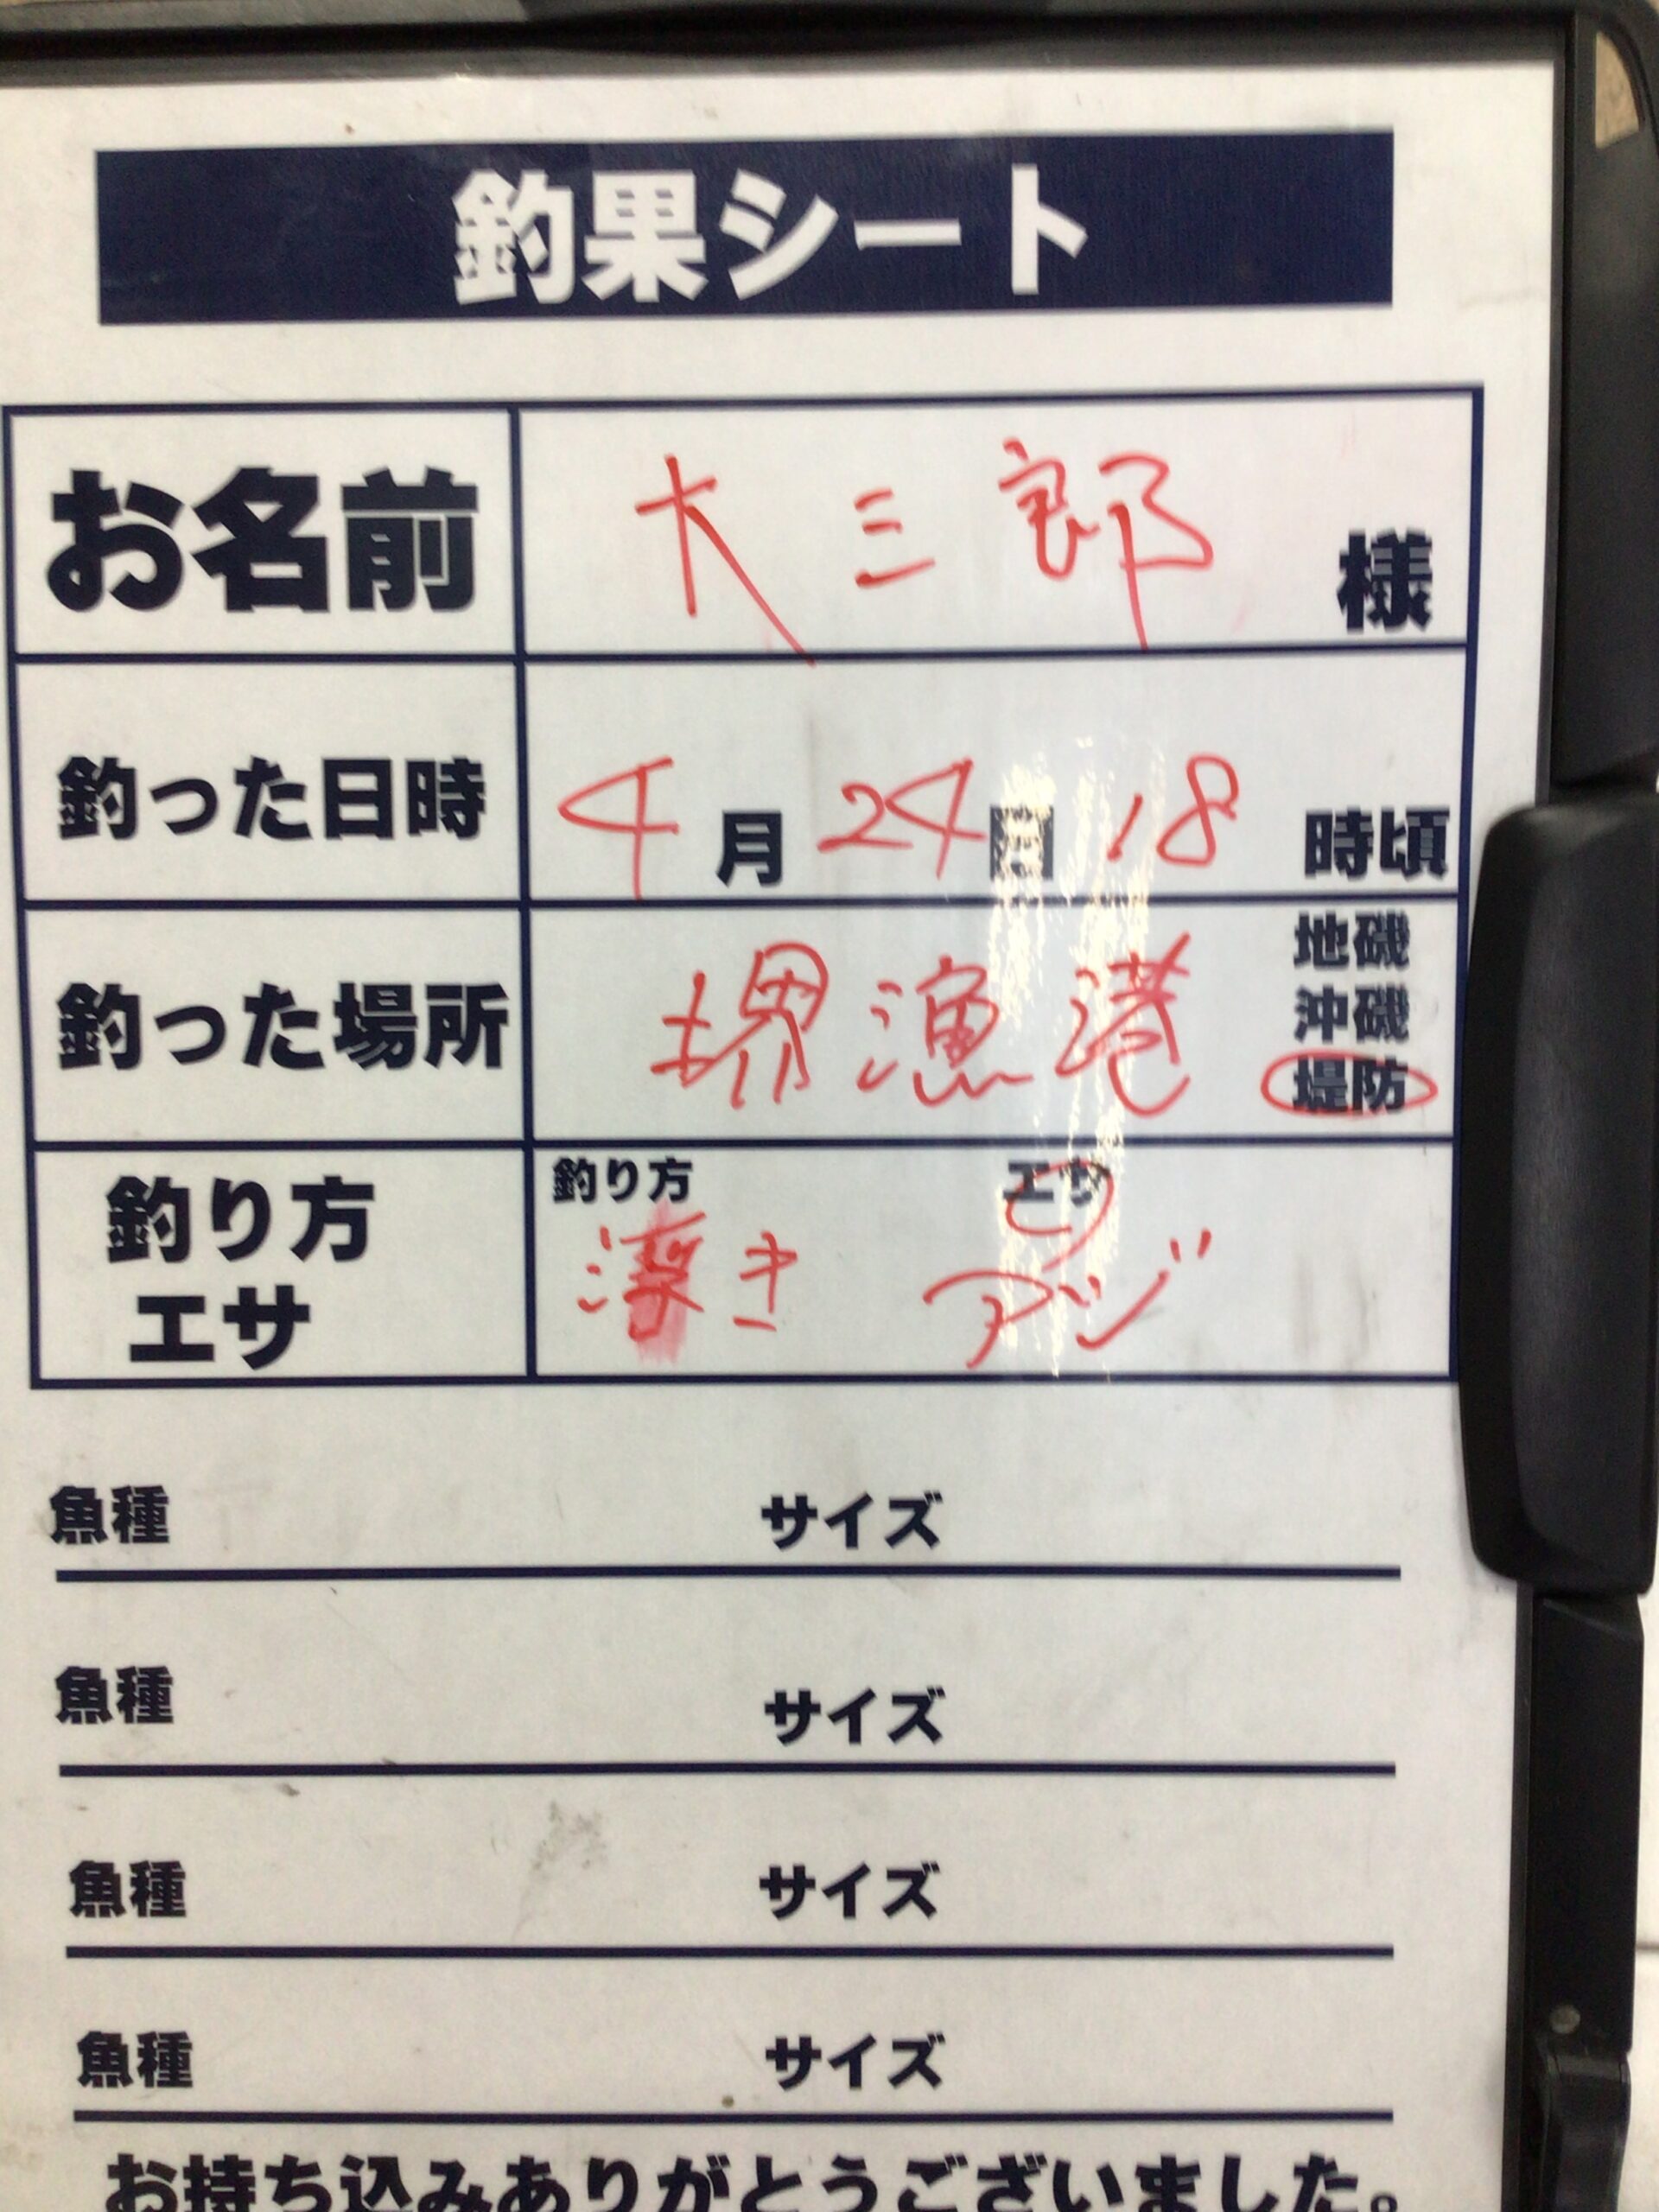 釣果シート
お名前 大三郎 様
釣った日時 4月24日18時頃
釣った場所 堺漁港 地磯 沖磯 堤防
釣り方 エサ
釣り方 エサ
き アジ
魚種 サイズ
魚種 サイズ
魚種 サイズ
魚種 サイズ
お持ち込みありがとうございました。